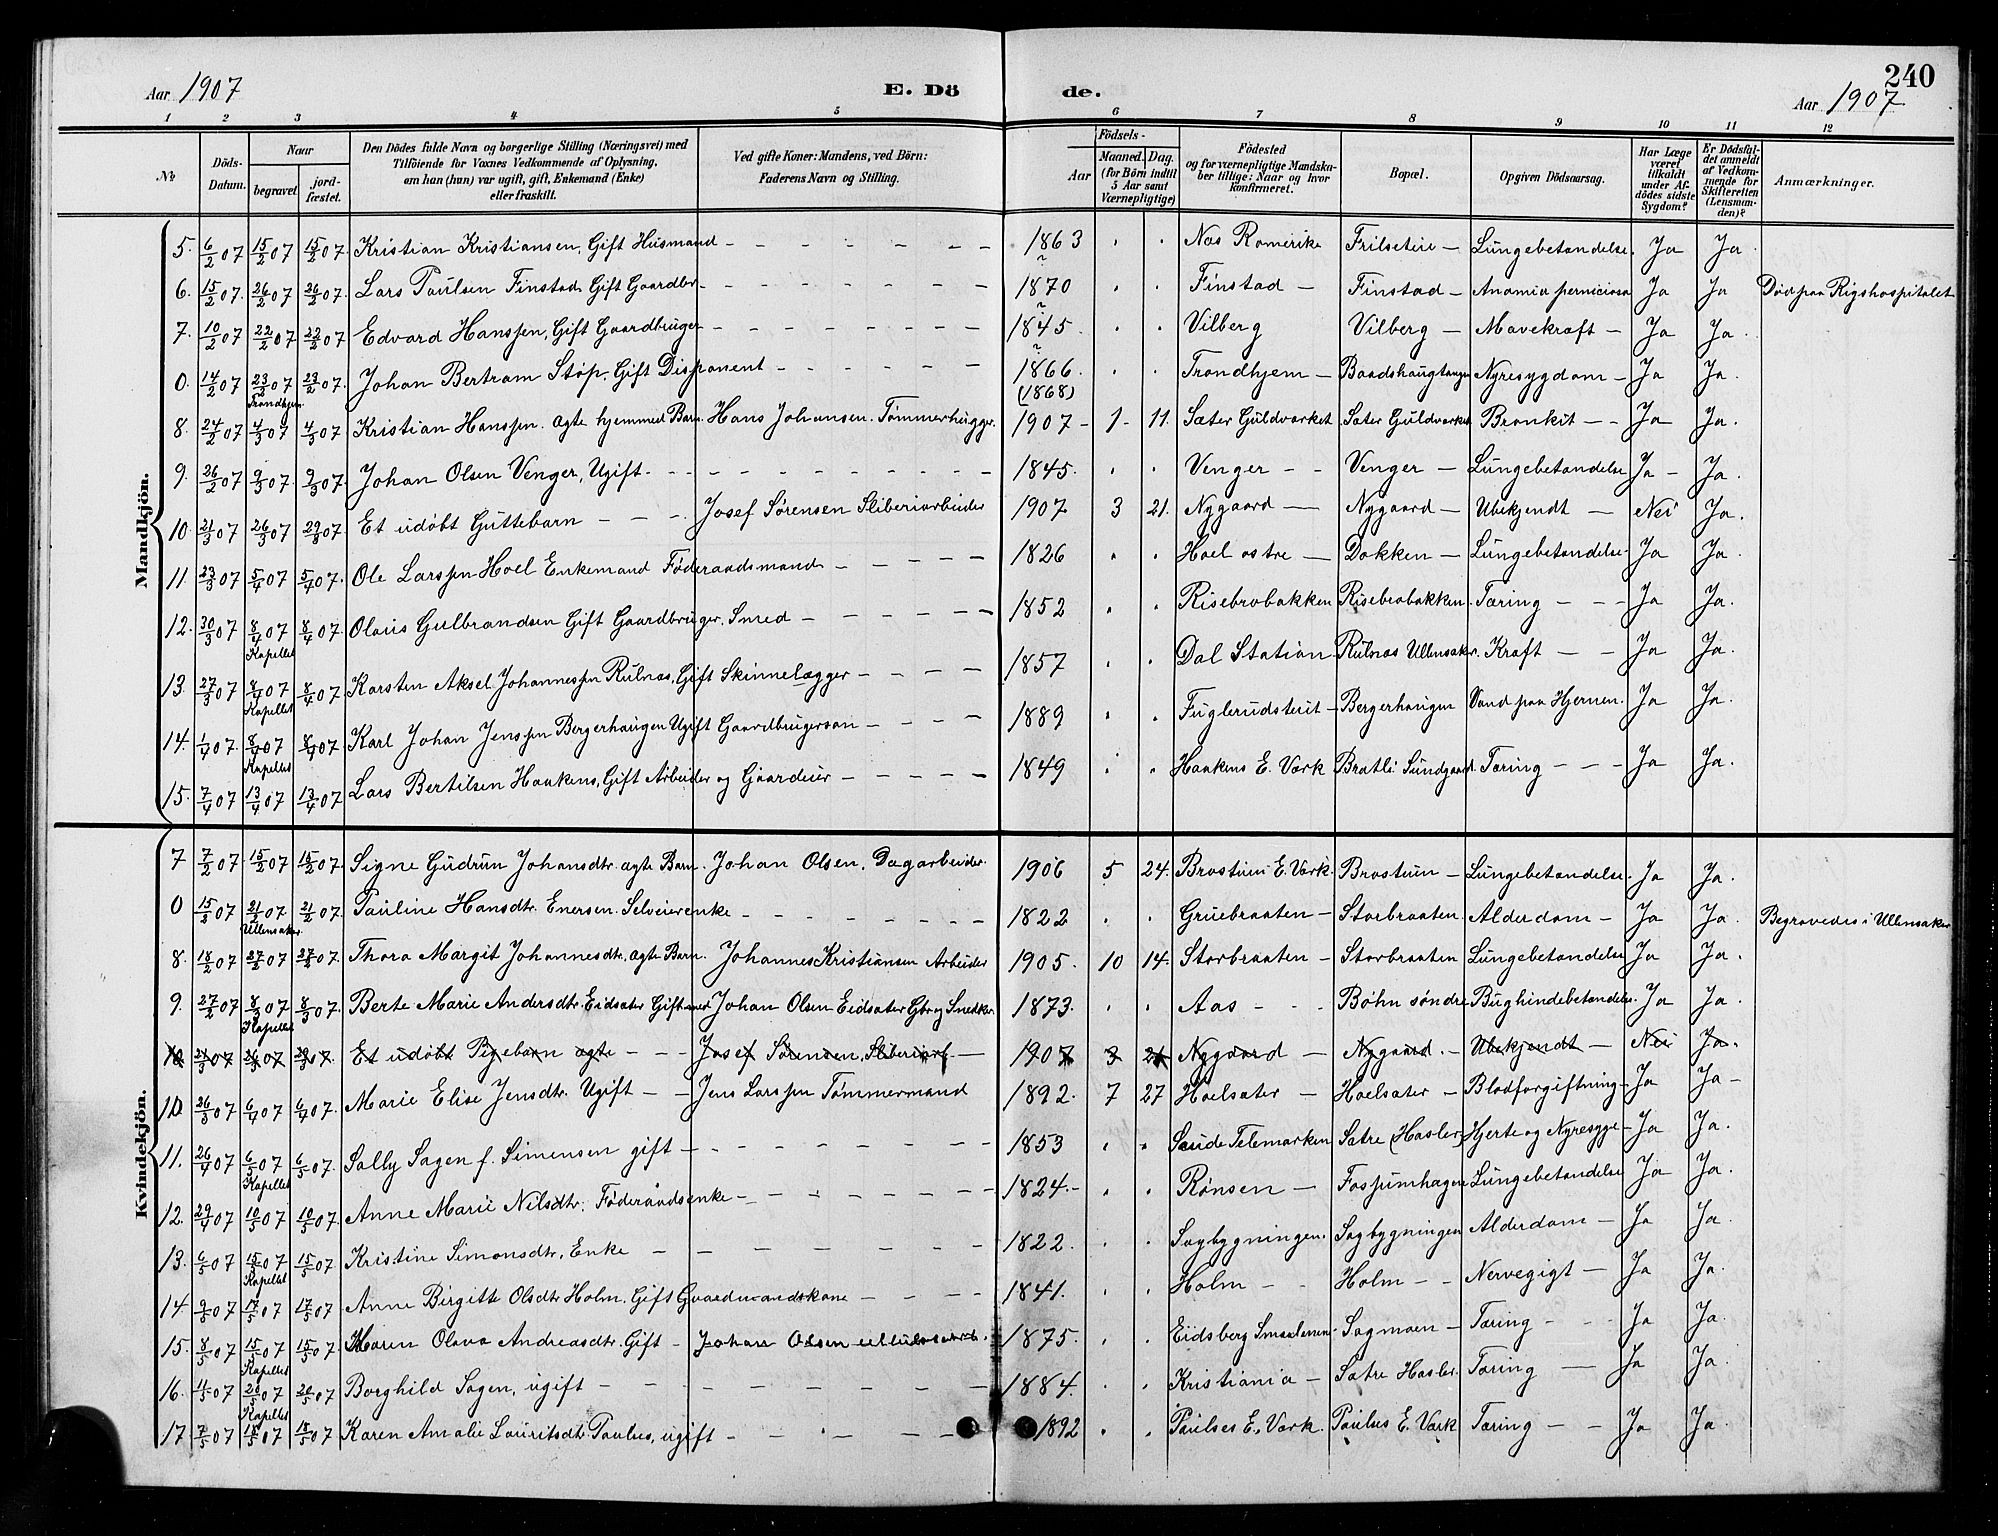 Aar 1907 E. Dö de. Aar 1907 240
1 2 3 4 5 6 7 8 9 10 11 12
№ Döds-Datum. Naar begravet. jordfæstet. Den Dödes fulde Navn og borgerlige Stilling (Næringsvei) med Tilföiende for Voxnes Vedkommende af Oplysning, om han (hun) var ugift, gift, Enkemand (Enke) eller fraskilt. Ved gifte Koner: Mandens, ved Börn: Faderens Navn og Stilling. Födsels- Aar Maaned. Dag. (for Börn indtil 5 Aar samt Værnepligtige) Födested og for værnepligtige Mandskaber tillige: Naar og hvor konfirmeret. Bopæl. Opgiven Dödsaarsag. Har Læge været tilkaldt under Afdödes sidste Sygdom? Er Dödsfaldet anmeldt af Vedkommende for Skifteretten (Lensmanden)? Anmærkninger.
Mandkjön.
5. 6/2 07 15/2 07 15/2 07. Kristian Kristiansen, Gift Husmand 1863 Nas Romerike Frilseteie Lungebetandelse. Ja Ja
6. 15/2 07. 26/2 07 26/2 07. Lars Paulsen Finstad, Gift Gaardbr 1870 Finstad Finstad Anamia perniciosa Ja Ja Død paa Rigshospitalet
7. 10/2 07 22/2 07 22/2 07 Edvard Hanssen, Gift Gaardbruger 1845. Vilberg Vilberg Mavekraft Ja Ja.
0. 14/2 07 23/2 07 Trondhjem 23/2 07. Johan Bertram Støp, Gift Disponent 1866. (1868) Trondhjem Baadshaugtangen Nyresygdom Ja Ja.
8. 24/2 07 4/3 07 4/3 07. Kristian Hanssen. agte hjemmed Barn Hans Johansen. Tømmerhugger. 1907 1 11. Sæter Guldvarket Sæter Guldvarket Bronkit Ja Ja.
9. 26/2 07 9/3 07 9/3 07. Johan Olsen Venger, Ugift 1845. Venger Venger Lungebetandelse Ja Ja.
10. 21/3 07 26/3 07 29/3 07. Et udøbt Guttebarn Josef Sørensen Sliberiarbeider 1907 3 21. Nygaard Nygaard Ubekjendt Nei Ja.
11. 23/3 07 5/4 07 5/4 07. Ole Larssen Hoel Enkemand Føderaadsmand 1826 Hoel østre Dokken Lungebetandelse Ja Ja.
12. 30/3 07 8/4 07 Kapellet 8/4 07. Olaus Gulbrandsen Gift Gaardbruger. Smed 1852 Risebrobakken Risebrobakken. Taring Ja Ja.
13. 27/3 07 8/4 07 Kapellet 8/4 07. Karsten Aksel Johannessen Rulnas, Gift Skinnelægger 1857 Dal Station Rulnas Ullensakr. Kraft Ja Ja.
14. 1/4 07. 8/4 07 Kapellet 8/4 07. Karl Johan Jenssen Bergerhaugen Ugift Gaardbrugersøn 1889 Fuglerudsteiet Bergerhaugen Vand paa Hjernen. Ja Ja.
15. 7/4 07 13/4 07 13/4 07. Lars Bertilsen Haakens, Gift Arbeider og Gaardeier 1849 Haakens E. Værk Bratli Sundgaard. Taring Ja Ja.
Kvindekjön.
7 7/2 07 15/2 07 15/2 07. Signe Gudrun Johansdtr. agte Barn. Johan Olsen. Dagarbeider 1906 5 24. Brostuen E. Værk. Brostuen Lungebetandelse. Ja Ja.
0 15/2 07 21/2 07 Ullensaker 21/2 07. Pauline Hansdtr. Enersen. Selveierenke 1822 Gruebraaten Storbraaten. Alderdom Ja Ja. Begravedes i Ullensaker
8. 18/2 07 27/2 07 27/2 07. Thora Margit Johannesdtr. agte Barn. Johannes Kristiansen Arbeider 1905. 10 14. Storbraaten Storbraaten Lungebetandelse Ja Ja.
9. 27/2 07 8/3 07 Kapellet 8/3 07. Berte Marie Andersdtr. Eidsater Gift med Johan Olsen Eidsater Gbr og Snedker. 1873. Aas Bøhn søndre Bughindebetandelse. Ja Ja.
10 21/3 07 26/3 07 29/3 07. Et udøbt Pigebarn agte Josef Sørensen. Sliberiarb. 1907 3 21 Nygaard Nygaard. Ubekjendt Nei Ja.
10. 26/3 07 6/4 07 6/4 07. Marie Elise Jensdtr. Ugift Jens Larssen Tømmermand 1892. 7 27 Hoelsater Hoelsater Blodforgiftning Ja Ja
11. 26/4 07 6/5 07 Kapellet 6/5 07. Solly Sagen f. Simensen gift 1853 Saude Telemarken Satre (Hasler) Hjerte og Nyresyge Ja Ja.
12. 29/4 07 10/5 07 10/5 07. Anne Marie Nilsdtr. Føderaadsenke 1824. Rønsen Fossumhagen Lungebetandelse Ja Ja.
13. 6/5 07 15/5 07 Kapellet 15/5 07. Kristine Simonsdtr, Enke 1822. Sagbygningen. Sagbygningen Alderdom Ja Ja.
14 9/5 07 17/5 07 17/5 07. Anne Birgitte Olsdtr Holm. Gift Gaardmandskone 1841. Holm Holm Nervegigt Ja Ja.
15. 8/5 07 15/5 07 Kapellet 15/5 07 Maren Olava Andreasdtr. Gift Johan Olsen 1875. Eidsberg Smaalenene. Sagmoen Taring Ja Ja.
16. 11/5 07 20/5 07 Kapellet 20/5 07 Borghild Sagen, ugift 1884. Kristiania Satre Hasler. Taring Ja Ja.
17 7/5 07 18/5 07 18/5 07 Karen Amalie Lauritsdtr. Paulses, ugift 1892 Paulses E. Værk. Paulses E. Værk Taring Ja Ja.